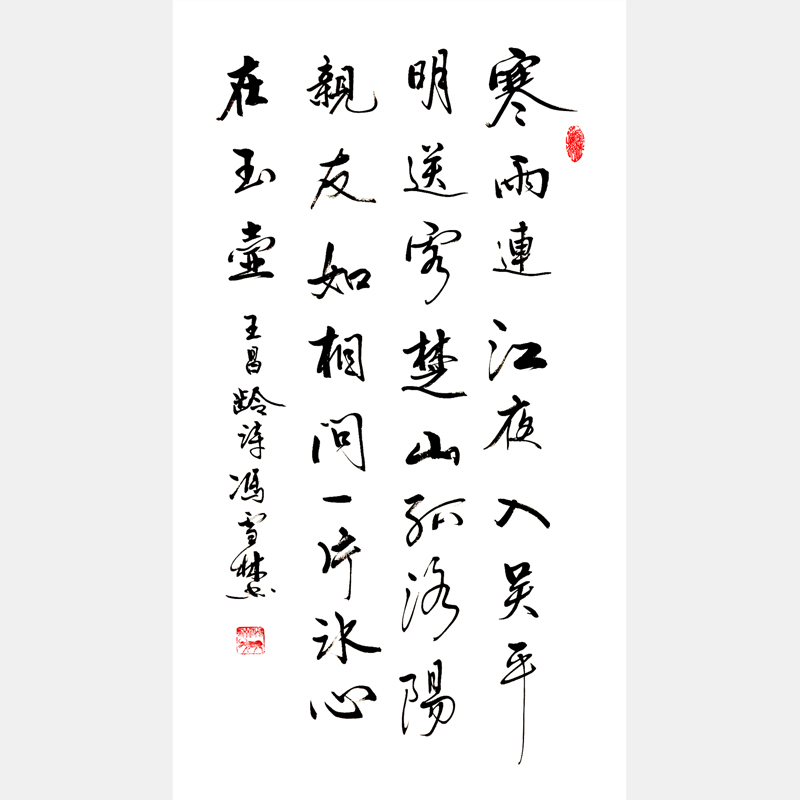 寒雨連江夜入吴平
明送客楚山孤洛陽
親友如相問一片冰心
在玉壺
王昌龄诗馮雪